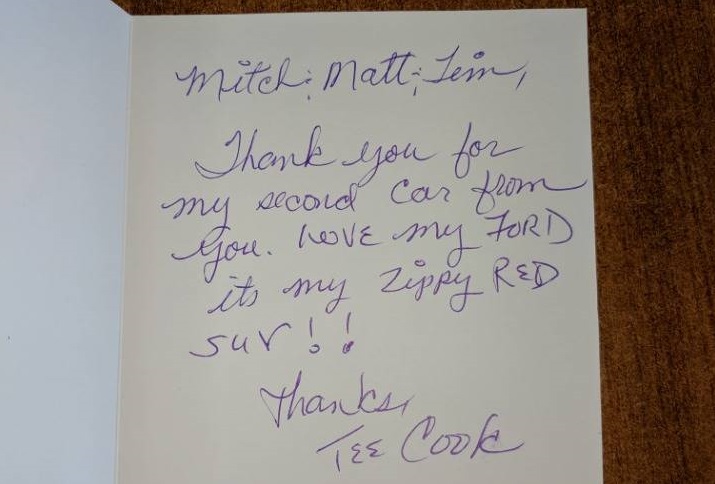 Mitch; Matt; Jim,
Thank you for
my second car from
you. LOVE my FORD
its my Zippy RED
SUV!!
Thanks,
TEE Cook